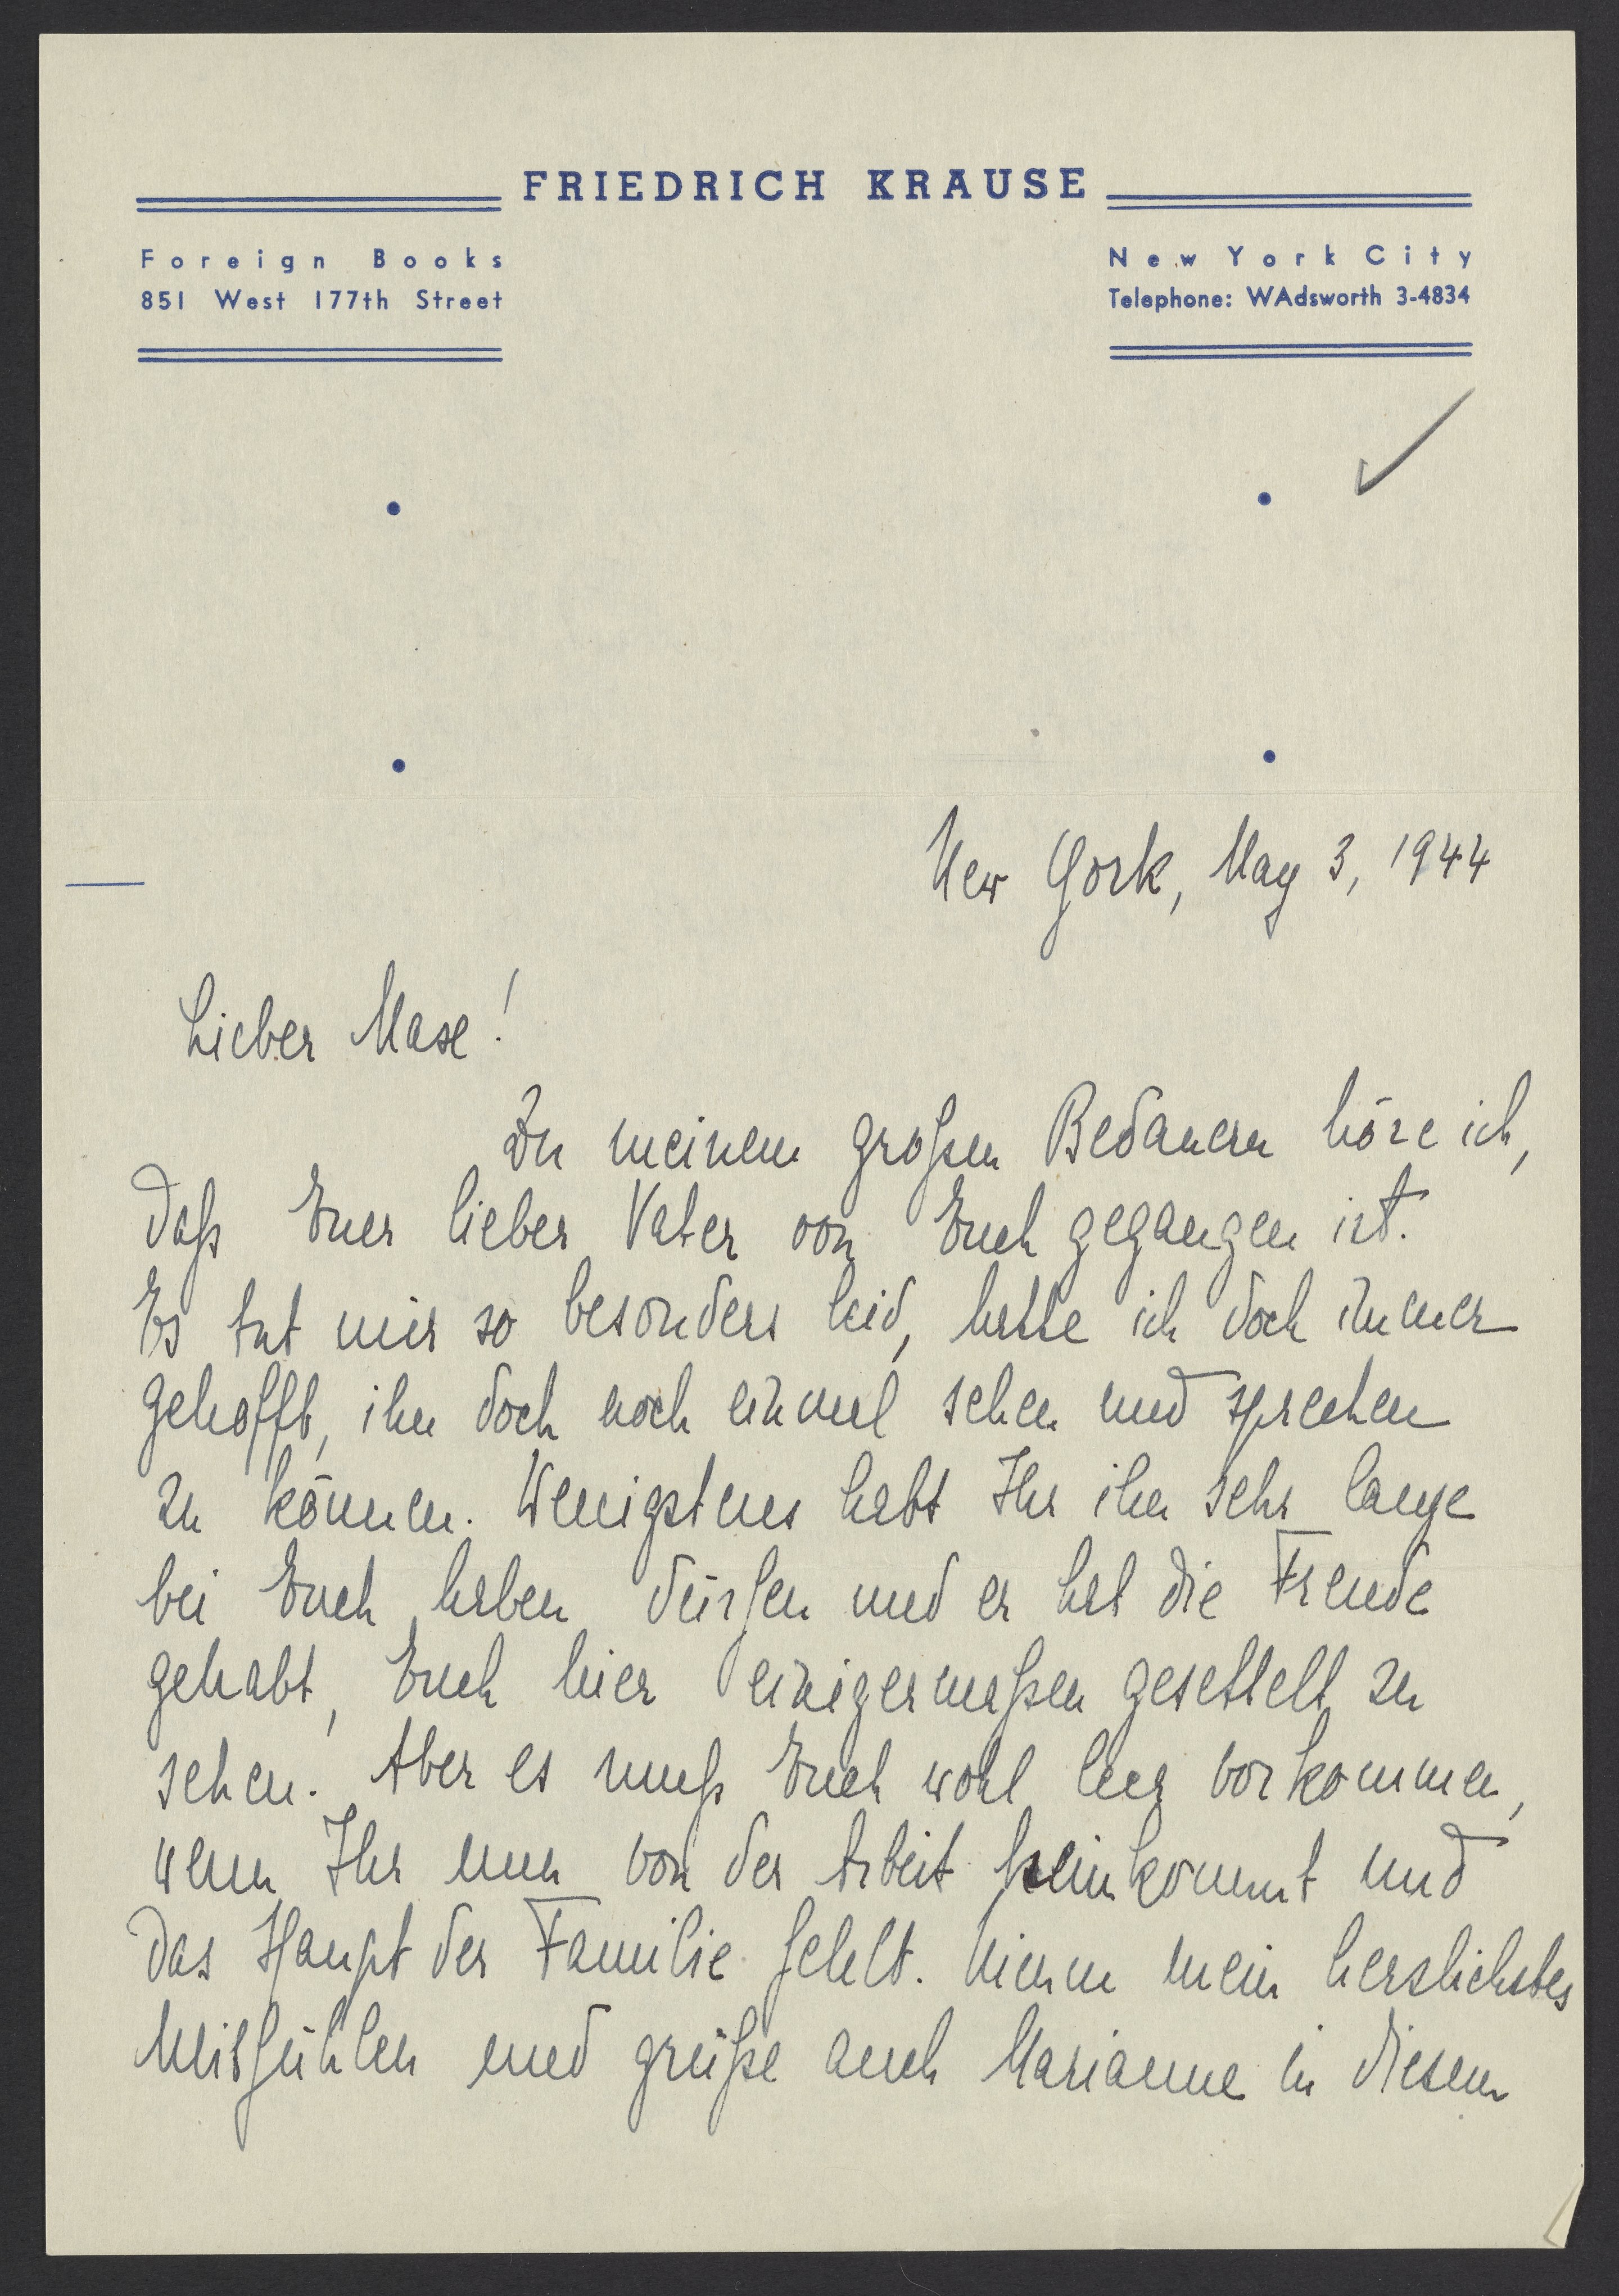 FRIEDRICH KRAUSE
Foreign Books
851 West 177th Street
New York City
Telephone: WAdsworth 3-4834
New York, May 3, 1944
Lieber Mase!
Zu meinem großen Bedauern höre ich,
daß Euer lieber Vater von Euch gegangen ist.
Es tut mir so besonders leid, hatte ich doch immer
gehofft, ihn doch noch einmal sehen und sprechen
zu können. Wenigstens habt Ihr ihn sehr lange
bei Euch haben dürfen und er hat die Freude
gehabt, Euch hier einigermaßen gesettelt zu
sehen. Aber es muß Euch wohl leer vorkommen,
wenn Ihr nun von der Arbeit heimkommt und
das Haupt der Familie fehlt. Nimm mein herzlichstes
Mitfühlen und grüße auch Marianne in diesem